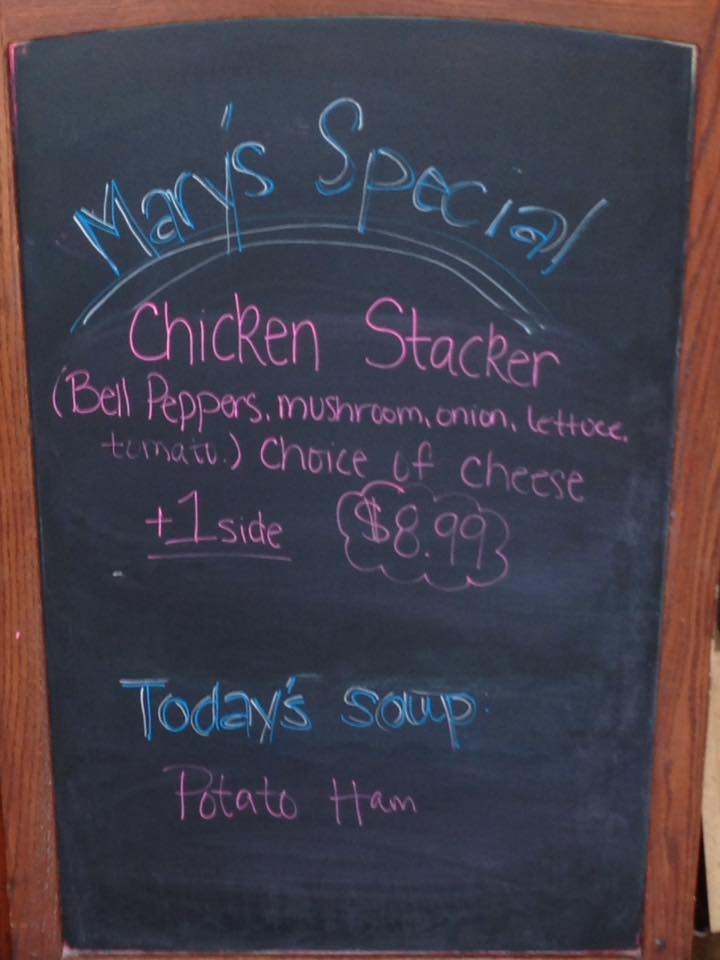 Mary's Special
Chicken Stacker
(Bell Peppers, mushroom, onion, lettuce,
tomato.) Choice of cheese
+1 side $8.99
Today's soup
Potato Ham